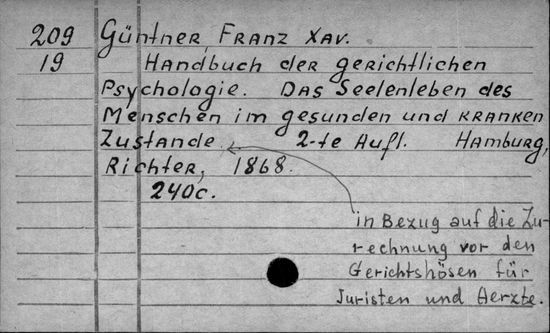 209 Güntner, Franz Xav.
19 Handbuch der gerichtlichen
Psychologie. Das Seelenleben des
Menschen im gesunden und kranken
Zustande. 2-te Aufl. Hamburg,
Richter, 1868.
240c.
in Bezug auf die Zu-
rechnung vor den
Gerichtshösen für
Juristen und Aerzte.